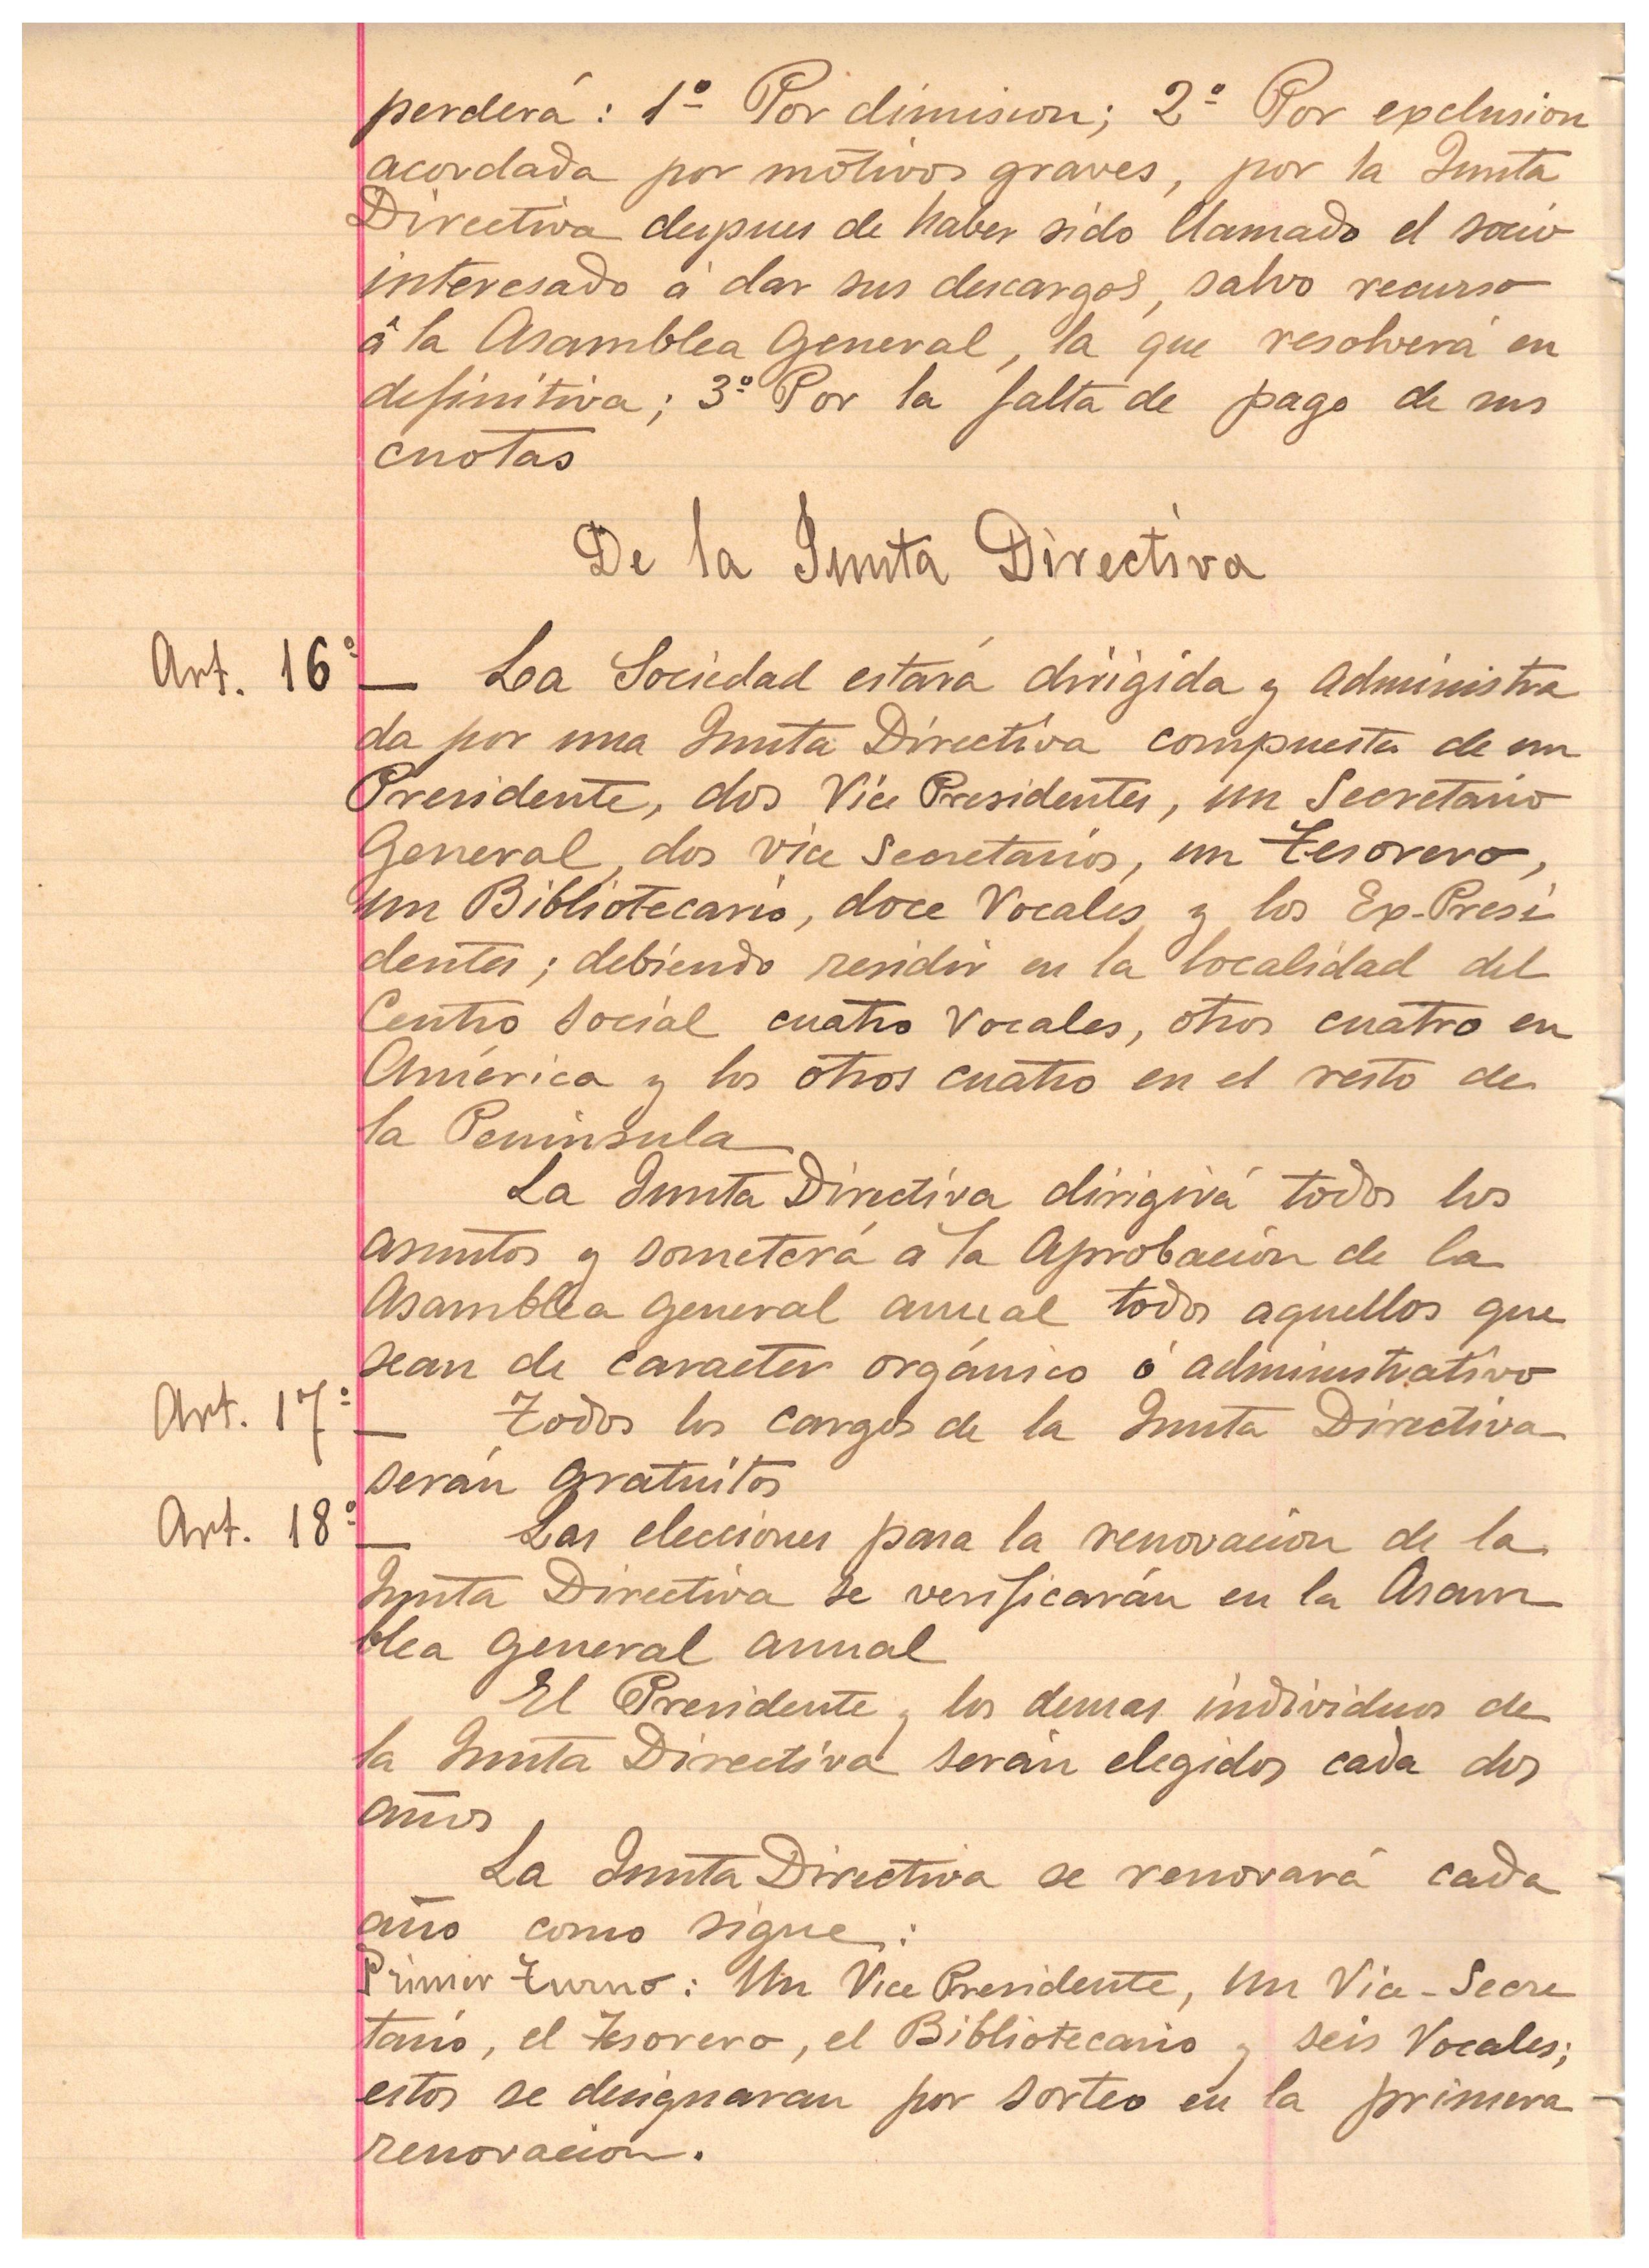 perderá: 1º Por dimision; 2º Por exclusion
acordada por motivos graves, por la Junta
Directiva despues de haber sido llamado el socio
interesado á dar sus descargos, salvo recurso
á la Asamblea General, la que resolverá en
definitiva; 3º Por la falta de pago de sus
cuotas
De la Junta Directiva
Art. 16º — La Sociedad estará dirigida y administra
da por una Junta Directiva compuesta de un
Presidente, dos Vice Presidentes, un Secretario
General, dos vice Secretarios, un Tesorero,
un Bibliotecario, doce Vocales y los Ex-Presi
dentes; debiendo residir en la localidad del
Centro social cuatro Vocales, otros cuatro en
América y los otros cuatro en el resto de
la Peninsula
La Junta Directiva dirigirá todos los
asuntos y someterá a la Aprobación de la
Asamblea general anual todos aquellos que
sean de caracter orgánico ó administrativo
Art. 17º — Todos los cargos de la Junta Directiva
serán gratuitos
Art. 18º — Las elecciones para la renovacion de la
Junta Directiva se verificarán en la Asam
blea general anual
El Presidente y los demas individuos de
la Junta Directiva serán elegidos cada dos
años
La Junta Directiva se renovará cada
año como sigue:
Primer turno: Un Vice Presidente, un Vice-Secre
tario, el Tesorero, el Bibliotecario y seis Vocales;
estos se designaran por sorteo en la primera
renovacion.